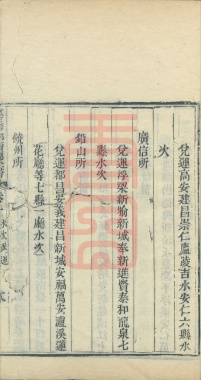 兌運高安建昌崇仁廬陵吉水安仁六縣水
次
廣信所
兌運浮梁新喻新城奉新進賢泰和龍泉七
縣水次
鉛山所
兌運都昌安義建昌新城安福萬安瀘溪蓮
花廳等七縣一廳水次
饒州所